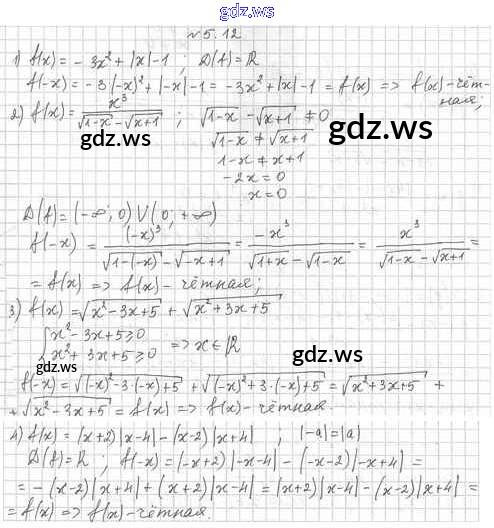 gdz.ws
№5.12
1) f(x) = - 3x² + |x| - 1 ; D(f) = R
f(-x) = -3(-x)² + |-x| - 1 = -3x² + |x| - 1 = f(x) => f(x) - чёт-
ная;
2) f(x) = x³/(√(1-x) - √(x+1)) ; √(1-x) - √(x+1) ≠ 0
√(1-x) ≠ √(x+1)
1-x ≠ x+1
-2x = 0
x = 0
D(f) = (-∞; 0) ∪ (0; +∞)
f(-x) = (-x)³/(√(1-(-x)) - √(-x+1)) = -x³/(√(1+x) - √(1-x)) = x³/(√(1-x) - √(x+1)) =
= f(x) => f(x) - чётная;
3) f(x) = √(x² - 3x + 5) + √(x² + 3x + 5)
{ x² - 3x + 5 ≥ 0
{ x² + 3x + 5 ≥ 0 => x ∈ R
f(-x) = √((-x)² - 3·(-x) + 5) + √((-x)² + 3·(-x) + 5) = √(x² + 3x + 5) +
+ √(x² - 3x + 5) = f(x) => f(x) - чётная.
4) f(x) = (x+2)|x-4| - (x-2)|x+4| ; |-a| = |a|
D(f) = R ; f(-x) = (-x+2)|-x-4| - (-x-2)|-x+4| =
= -(x-2)|x+4| + (x+2)|x-4| = (x+2)|x-4| - (x-2)|x+4| =
= f(x) => f(x) - чётная.
gdz.ws
gdz.ws
gdz.ws
gdz.ws
gdz.ws